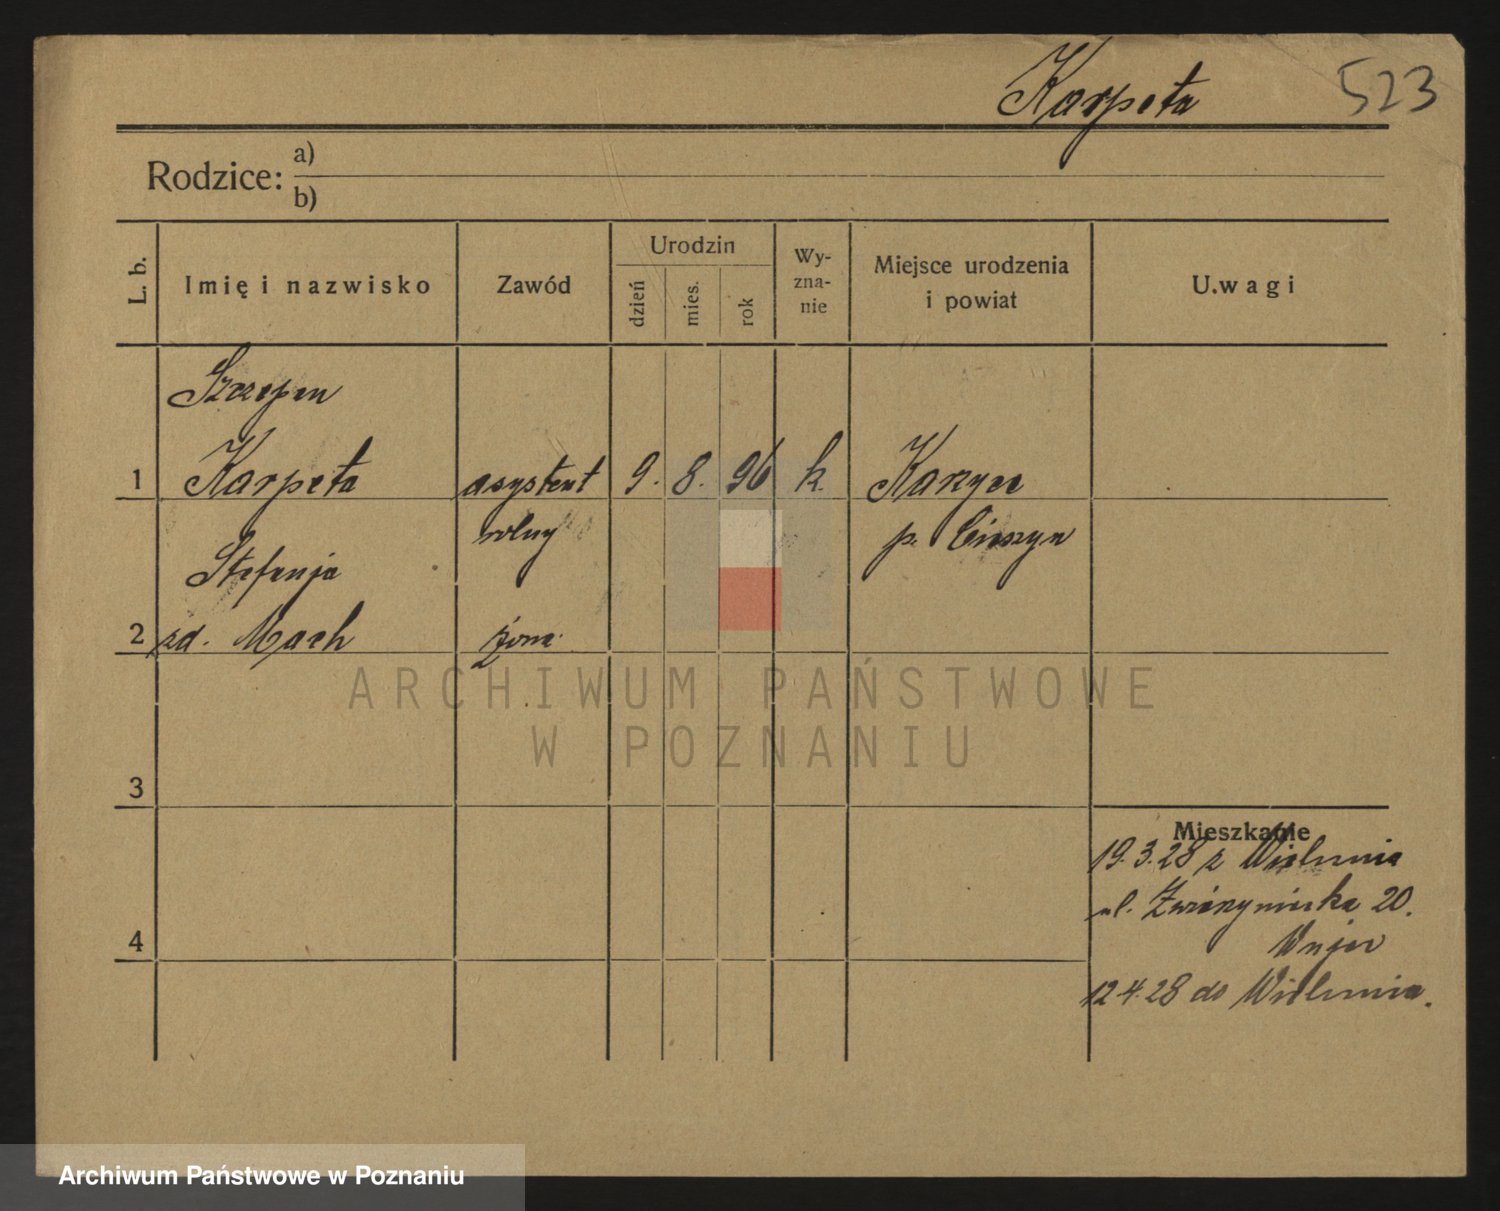 Karpeta 523
Rodzice: a)
b)
L. b.
Imię i nazwisko
Zawód
Urodzin
dzień
mies.
rok
Wy-
zna-
nie
Miejsce urodzenia
i powiat
Uwagi
Szczepan
1 Karpeta asystent 9. 8. 96 k.
rolny p. Cieszyn
Stefanja
2 zd. Mach żona
3
4
Mieszkanie
19.3.28 z Wielunia
ul. Zwierzyniecka 20.
12.4.28 do Wielunia.
ARCHIWUM PAŃSTWOWE
W POZNANIU
Archiwum Państwowe w Poznaniu